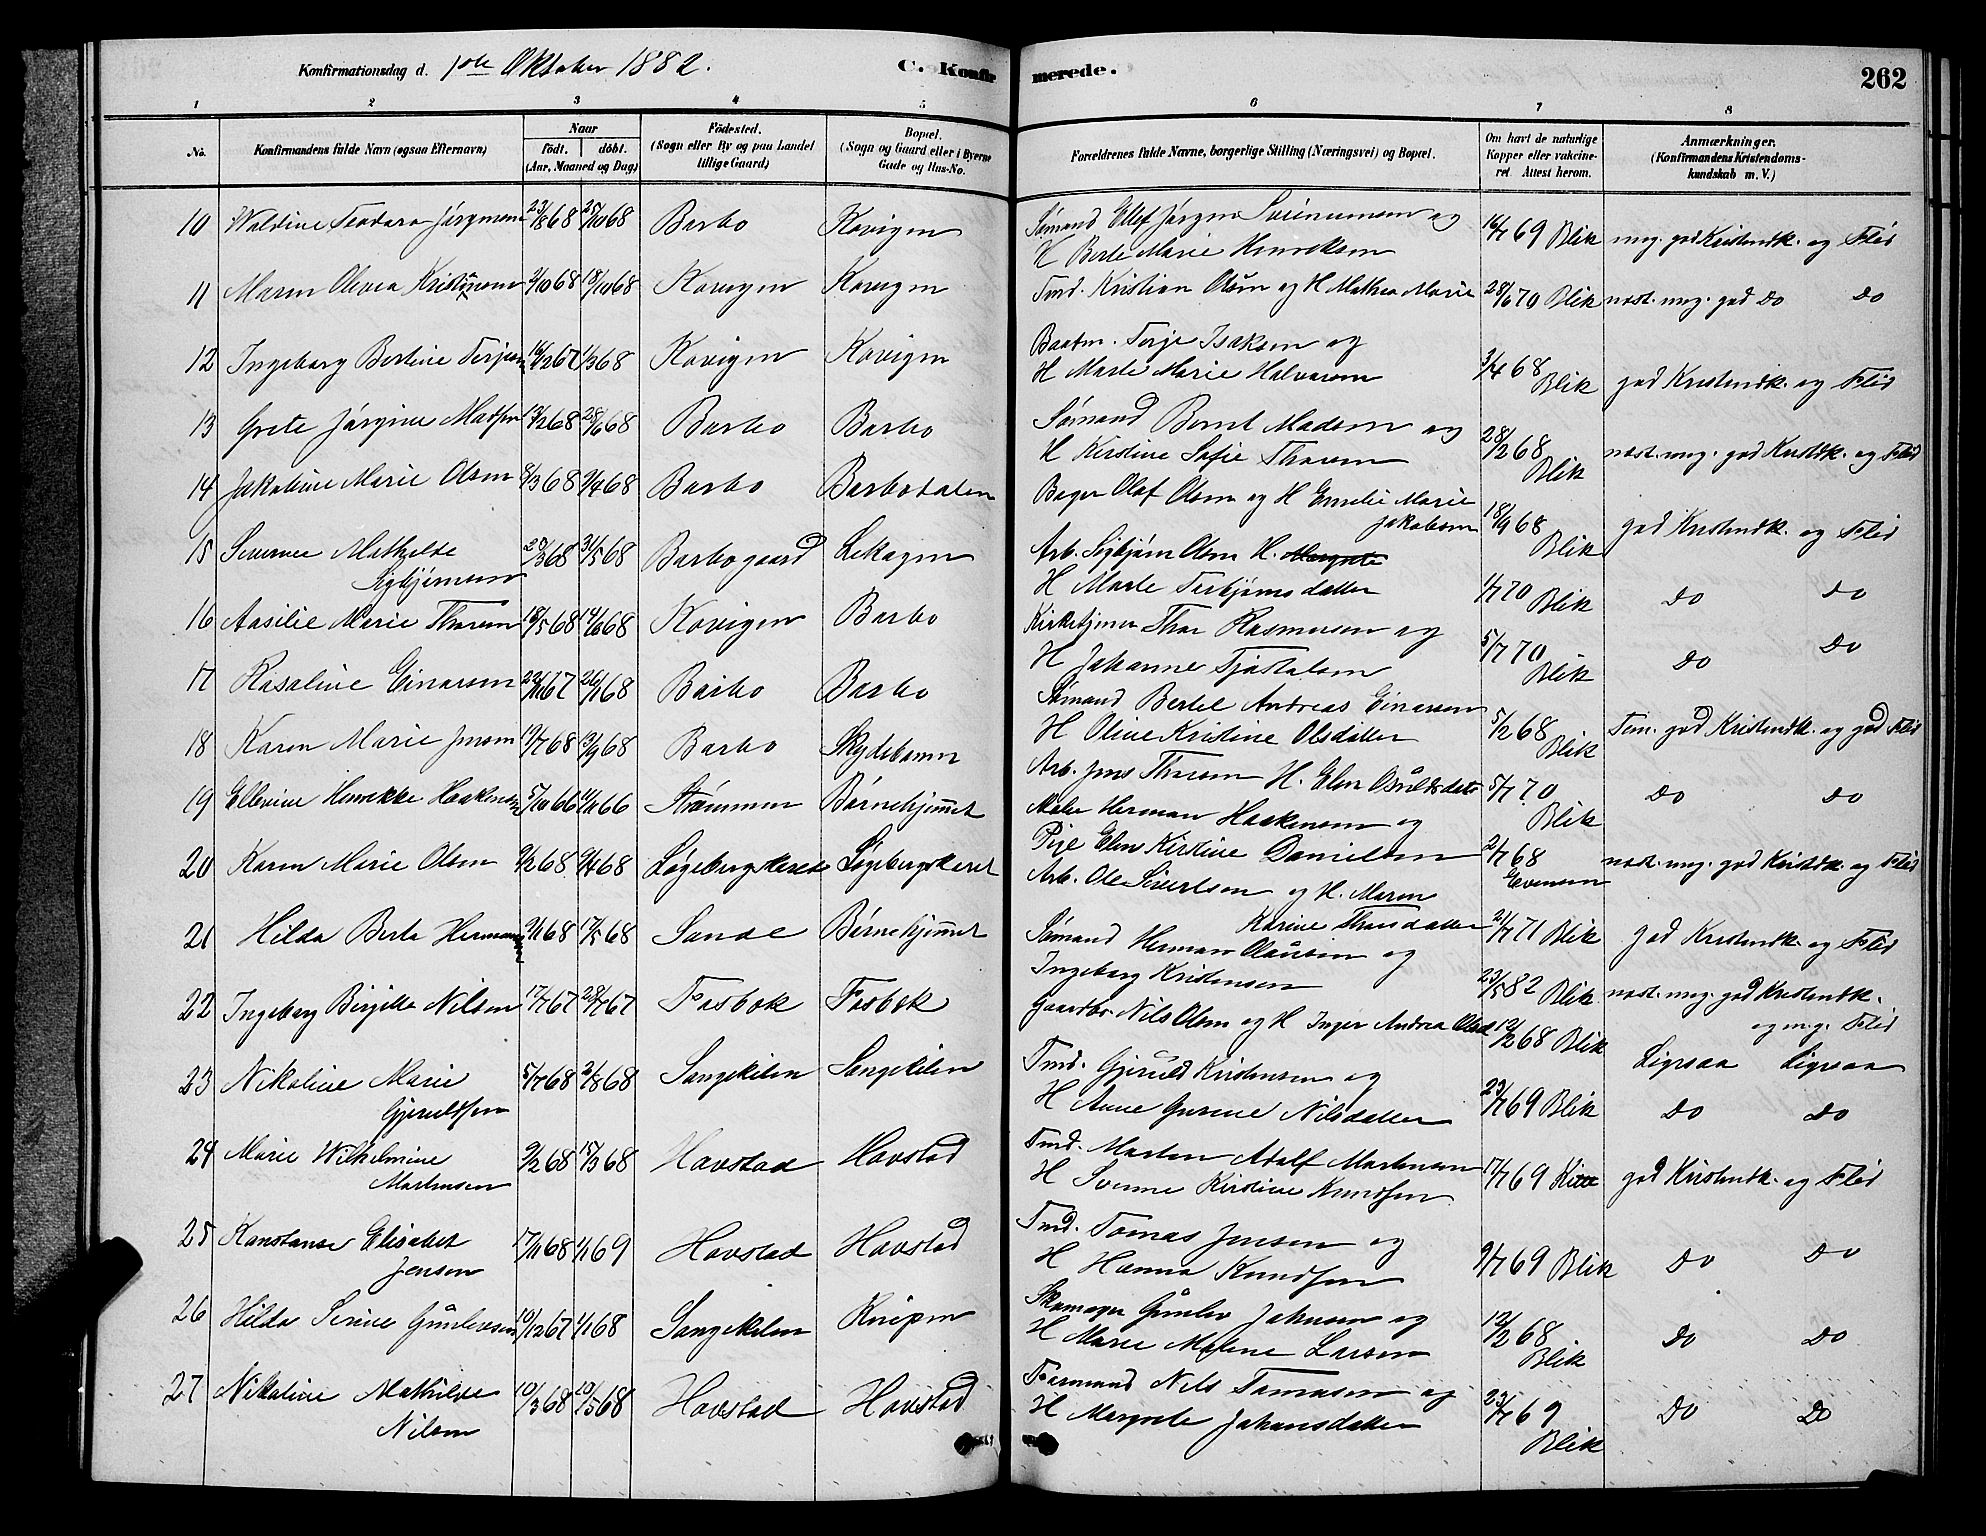 Konfirmationsdag d. 1ste Oktober 1882. C. Konfirmerede. 262
1 2 3 4 5 6 7 8
No. Konfirmandens fulde Navn (ogsaa Efternavn) Naar födt. döbt. (Aar, Maaned og Dag) Födested. (Sogn eller By og paa Landet tillige Gaard) Bopæl. (Sogn og Gaard eller i Byerne Gade og Hus-No. Forældrenes fulde Navne, borgerlige Stilling (Næringsvei) og Bopæl. Om havt de naturlige Kopper eller vakcineret. Attest herom. Anmærkninger. (Konfirmandens Kristendomskundskab m. V.)
10 Waldine Teodora Jørgensen 23/8 68 25/10 68 Barbo Kovigen Sømand Ellef Jørgen Sørensen og
H Berte Marie Henriksen 16/7 69 Blik meg. god Kristendk. og Flid
11 Maren Olevea Kristensen 2/10 68 18/10 68 Kovigen Kovigen Tmd. Kristian Olsen og H Mathea Marie 28/6 70 Blik næst. meg. god Do Do
12 Ingeborg Bertine Terjesen 16/12 67 1/3 68 Kovigen Kovigen Baatm. Terje Isaksen og
H Marte Marie Halvorsen 3/4 68 Blik god Kristendk. og Flid
13 Grete Jørgine Madsen 13/2 68 28/6 68 Barbo Barbo Sømand Bernt Madsen og
H Kirstine Sofie Thorsen 28/2 68 Blik næst. meg. god Kristdk. og Flid
14 Jakobine Marie Olsen 8/3 68 9/4 68 Barbo Barbodalen Bager Olaf Olsen og H Emelie Marie
Jakobsen 18/9 68 Blik god Kristendk. og Flid
15 Severine Mathilde
Sigbjørnsen 20/3 68 31/5 68 Barbogaard Lekagen Arb. Sigbjørn Olsen H. Margrete
H Marte Terbjørnsdatter 1/7 70 Blik Do Do
16 Aasilie Marie Thorsen 18/5 68 14/6 68 Kovigen Barbo Kirketjener Thor Rasmusen og
H Johanne Tjostolsen 5/7 70 Blik Do Do
17 Rosaline Einarsen 22/11 67 26/1 68 Barbo Barbo Sømand Bertel Andreas Einarsen
H Oline Kristine Olsdatter 5/2 68 Blik Tem. god Kristendk. og god Flid
18 Karen Marie Jensen 19/7 68 13/9 68 Barbo Skydebanen Arb. Jens Thorsen H. Elen Osuldsdatr 5/7 70 Blik Do Do
19 Ellevine Henrikke Haakensen 5/10 66 4/11 66 Strømmen Børnehjemmet Maler Herman Haakensen og
Pige Elen Kirstine Danielsen 2/7 68 Evensen næst. meg. god Kristdk. og Flid
20 Karen Marie Olsen 9/2 68 9/4 68 Løgebergskeret Løgebergskeret Arb. Ole Sivertsen og H. Maren
Karine Thorsdatter 21/7 71 Blik god Kristendk. og Flid
21 Hilda Berta Hermansen 2/1 68 17/5 68 Sande Børnehjemmet Sømand Herman Clausen og
Ingeborg Kristensen 23/5 82 Blik næst. meg. god Kristendk.
og meg. Flid
22 Ingeborg Birgitte Nilsen 17/7 67 28/7 67 Fosbæk Fosbæk Gaardbr. Nils Olsen og H Inger Andrea Olsd 12/2 68 Blik Ligesaa Ligesaa
23 Nikoline Marie
Gjeruldsen 5/7 68 2/8 68 Songekilen Songekilen Tmd. Gjeruld Kristensen og
H Anne Gurine Nilsdatter 23/7 69 Blik Do Do
24 Marie Wilhelmine
Mortensen 9/2 68 15/3 68 Havstad Havstad Tmd. Morten Adolf Mortensen
H Severine Kirstine Knudsen 17/7 69 god Kristendk. og Flid
25 Konstanse Elisabet
Jensen 17/11 68 1/1 69 Havstad Havstad Tmd. Tomas Jensen og
H Hanna Knudsen 9/7 69 Blik Do Do
26 Hilda Serine Gunlevsen 19/12 67 1/1 68 Songekilen Knipen Skomager Gunlev Johnsen og
H Marie Malene Larsen 12/2 68 Blik Do Do
27 Nikoline Mathilde
Nilsen 10/3 68 10/5 68 Havstad Havstad Formand Nils Tomasen og
H Margrete Johansdatter 23/7 69 Blik Do Do